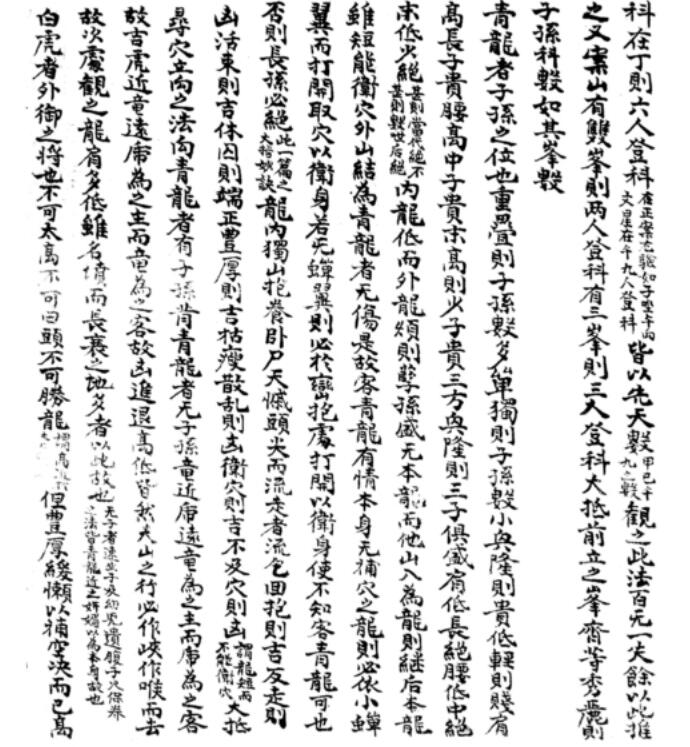 科在丁則六人登科在正案尤驗如子坐午向文星在午九人登科皆以先天數甲己子午九之數觀之此法百无一失餘以此推
之又案山有雙峯則兩人登科有三峯則三人登科大抵前立之峯齊等秀麗則
子孫科數如其峯數
青龍者子孫之位也重疊則子孫數多單獨則子孫數小興隆則貴低輕則賤肩
高長子貴腰高中子貴末高則少子貴三方興隆則三子俱盛肩低長絕腰低中絕
末低少絕甚則當代絕不甚則數世后絕內龍低而外龍頻則孽孫盛无本龍而他山入為龍則継后本龍
雖短能衛穴外山結為青龍者无傷是故客青龍有情本身无補穴之龍則必依小蟬
翼而打開取穴以衛身若无蟬翼則必於巒抱處打開以衛身使不知客青龍可也
否則長孫必絕此一篇之大旨妙訣龍內獨山抱養卧尸夭慽頭尖而流走者流乞回抱則吉反走則
凶活東則吉休囚則端正豊厚則吉枯瘦散乱則凶衛穴則吉不及穴則凶謂龍短而不能衛穴大抵
尋穴立向之法向青龍者有子孫背青龍者无子孫竜近虎遠竜為之主而虎為之客
故吉虎近竜遠虎為之主而竜為之客故凶進退高低皆然夫山之行必作峽作喉而去
故次處觀之龍肩多低雖名墳而長衰之地多者以此故也无子者速生子及幼兒遺腹子以保养之法皆青龍近之妍媚以為本身故也
白虎者外御之将也不可太高不可臼頭不可勝龍但豊厚緩懶以補空峡而已高